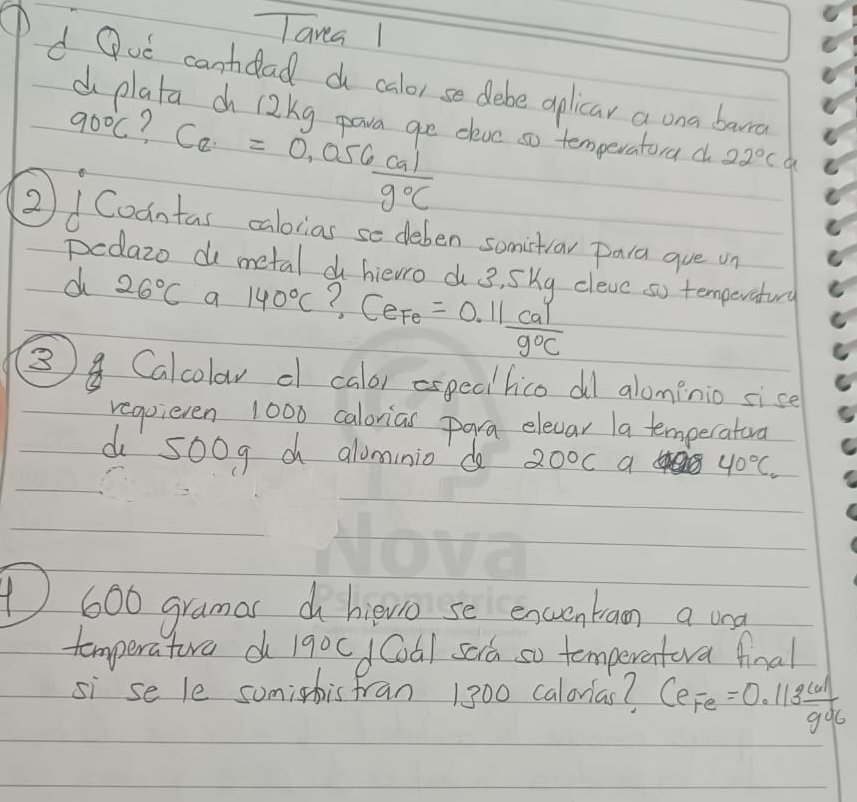 Tarea 1
① ¿Qué cantidad de calor se debe aplicar a una barra
de plata de 12kg para qe eleve so temperatura de 22°C a
90°C? Ce = 0,056 cal
g°C
② ¿Coántas calorias se deben somistrar para que un
pedazo de metal de hierro de 3,5Kg eleve so temperatura
de 26°C a 140°C? CeFe = 0.11 cal
g°C
③ Calcolar el calor especifico del alominio si se
reqoieren 1000 calorias para elevar la temperatora
de 500g de alominio de 20°C a 40°C.
Nova
Psicometrics
4 600 gramos de hierro se encuentran a una
temperatura de 19°C ¿Coál será so temperatora final
si se le suministran 1300 calorías? CeFe = 0.113 cal
g°C